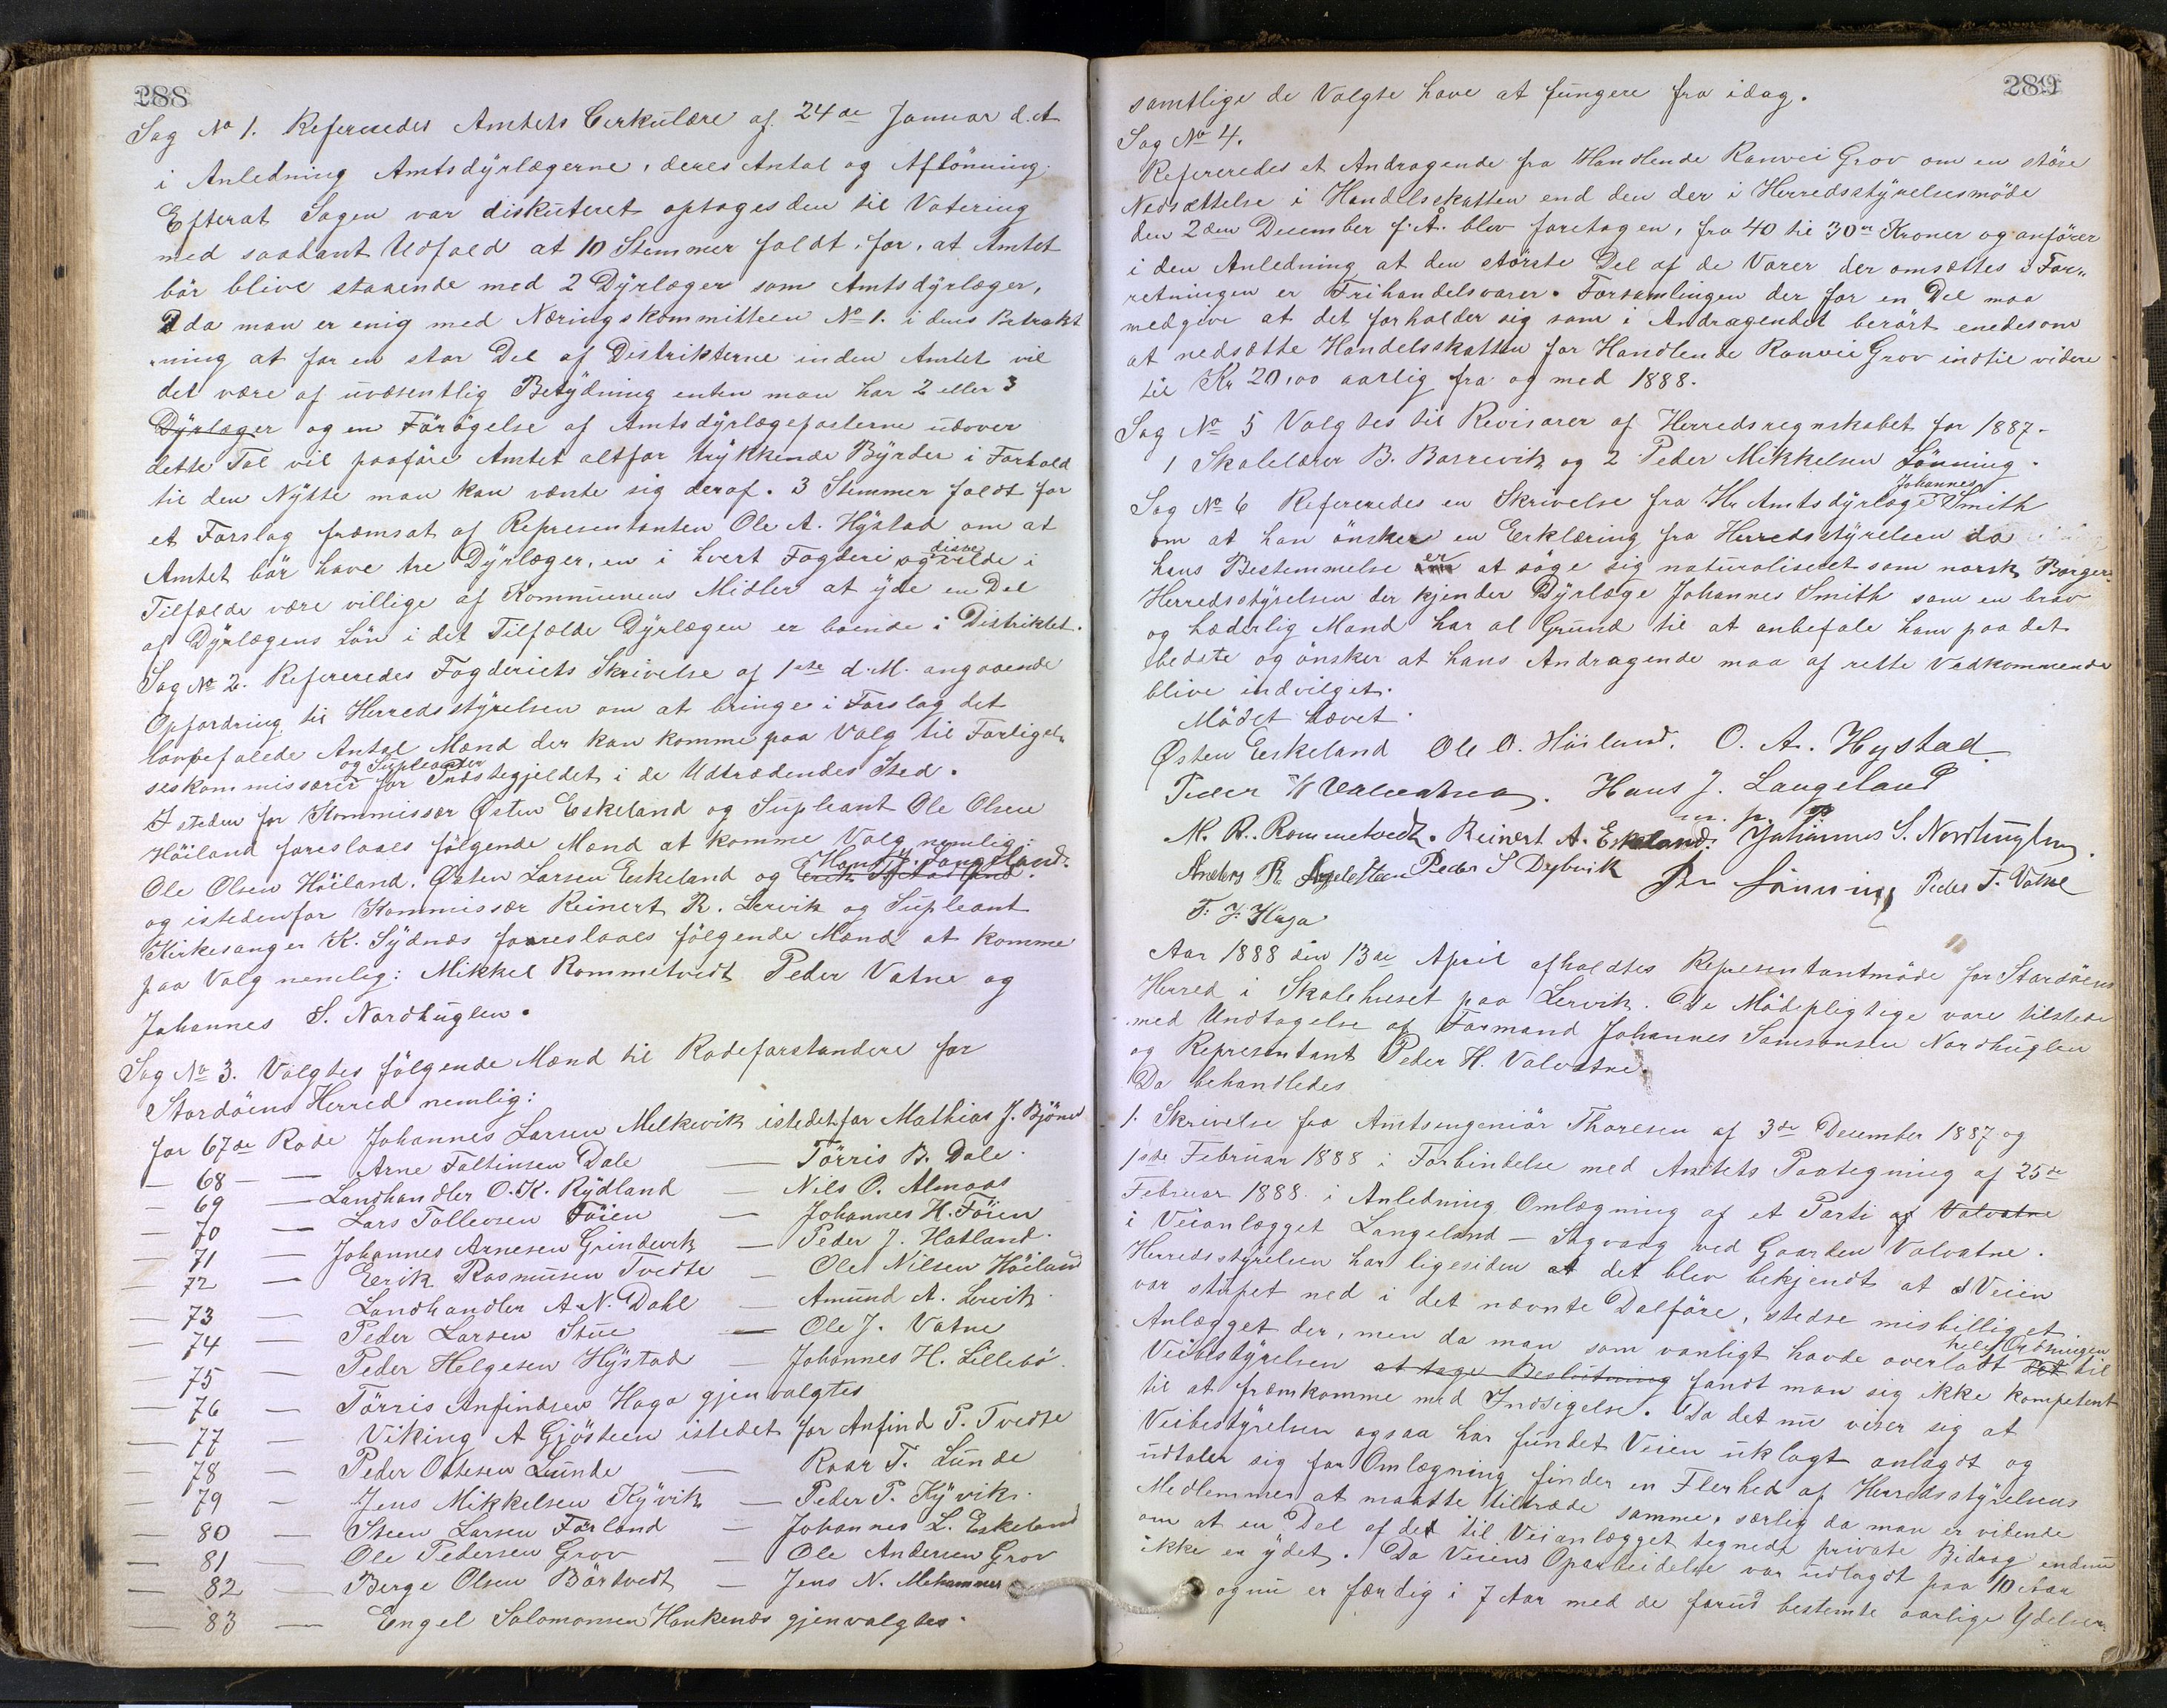 288
Sag No 1. Refereredes Amtets Cirkulære af 24de Januar d.A
i Anledning Amtsdyrlægerne, deres Antal og Aflönning.
Efterat Sagen var diskuteret optoges den til Votering
med saadant Udfald at 10 Stemmer faldt for, at Amtet
bör blive staaende med 2 Dyrlæger som Amtsdyrlæger,
da man er enig med Næringskommitteen No 1. i dens Betrakt
ning at for en stor Del af Distrikterne inden Amtet vil
det være af uvæsentlig Betydning enten man har 2 eller 3
Dyrlæger og en Forögelse af Amtsdyrlægeposterne udover
dette Tal vil paaföre Amtet altfor trykkende Byrder i Forhold
til den Nytte man kan vænte sig deraf. 3 Stemmer faldt for
et Forslag fræmsat af Representanten Ole A. Hystad om at
Amtet bör have tre Dyrlæger, en i hvert Fogderi og vilde disse i
Tilfælde være villige af Kommunens Midler at yde en Del
af Dyrlægens Lön i det Tilfælde Dyrlægen er boende i Distriktet.
Sag No 2. Refereredes Fogderiets Skrivelse af 1ste d.M. angaaende
Opfordring til Herredsstyrelsen om at bringe i Forslag det
lovbefalede Antal Mænd der kan komme paa Valg til Forligel„
seskommissærer og Supleanter for Præstegjeldet i de Udtrædendes Sted.
I steden for Kommissær Østen Eskeland og Supleant Ole Olsen
Höiland foreslaaes fölgende Mænd at komme Valg nemlig:
Ole Olsen Höiland. Østen Larsen Eskeland og Hans J. Langeland.
og istedenfor Kommissær Reinert R. Lervik og Supleant
Kirkesanger K. Sydnæs foreslaaes fölgende Mænd at komme
paa Valg nemlig: Mikkel Rommetvedt Peder Vatne og
Johannes S. Nordhuglen.
Sag No 3. Valgtes fölgende Mænd til Rodeforstandere for
Stordöens Herred nemlig:
for 67de Rode Johannes Larsen Melkevik istedetfor Mathias J. Bjönes
— 68 — Arne Faltinsen Dale — Törris B. Dale.
— 69 — Landhandler O.K. Rydland — Nils O. Almaas
— 70 — Lars Tollevsen Föien — Johannes H. Föien
— 71 — Johannes Arnesen Grindevik — Peder J. Hatland.
— 72 — Eerik Rasmusen Tvedte — Ole Nilsen Höiland
— 73 — Landhandler A.N. Dahl — Amund A. Lervik
— 74 — Peder Larsen Stue — Ole J. Vatne
— 75 — Peder Helgesen Hystad — Johannes H. Lillebö
— 76 — Törris Anfindsen Haga gjenvalgtes
— 77 — Viking A Gjösteen istedet for Anfind P. Tvedte
— 78 — Peder Ottesen Lunde — Roar T. Lunde
— 79 — Jens Mikkelsen Kyvik — Peder P. Kyvik.
— 80 — Steen Larsen Förland — Johannes L. Eskeland
— 81 — Ole Pedersen Grov — Ole Andersen Grov
— 82 — Berge Olsen Börtvedt — Jens N. Mehammer
— 83 — Engel Salomonsen Haukenæs gjenvalgtes.
289
samtlige de Valgte have at fungere fra idag.
Sag No 4.
Refereredes et Andragende fra Handlende Ranvei Grov om en störe
Nedsættelse i Handelsskatten end den der i Herredsstyrelsesmöde
den 2den Desember f.A. blev foretagen, fra 40 til 30 Kroner og anförer
i den Anledning at den störste Del af de Varer der omsættes i For„
retningen er Frihandelsvarer. Forsamlingen der for en Del maa
medgive at det forholder sig som i Andragendet berört enedes om
at nedsætte Handelsskatten for Handlende Ranvei Grov indtil videre
til Kr 20,00 aarlig fra og med 1888.
Sag No 5 Valgtes til Revisorer af Herredsregnskabet for 1887.
1 Skolelærer B. Børrevik og 2 Peder Mikkelsen Lönning.
Sag No 6 Refereredes en Skrivelse fra Hr Amtsdyrlæge Johannes Smith
om at han önsker en Erklæring fra Herredsstyrelsen da
hans Bestemmelse er at söge sig naturaliseret som norsk Borger.
Herredsstyrelsen der kjender Dyrlæge Johannes Smith som en brav
og hæderlig Mand har al Grund til at anbefale ham paa det
bedste og önsker at hans Andragende maa af rette Vedkommende
blive indvilget.
Mödet hævet.
Østen Eskeland Ole O. Höiland. O. A. Hystad
Peder H Valvatne. Hans J. Langeland
m. p. P
M. R. Rommetvedt. Reinert A. Eskeland. Johannes S. Nordhuglen.
Anders R. Peder S Dybvik Lönning Peder T. Vatne
T. J. Haga
Aar 1888 den 13de April afholdtes Representantmöde for Stordöens
Herred i Skolehuset paa Lervik. De Mödepligtige vare tilstede
med Undtagelse af Formand Johannes Samsonsen Nordhuglen
og Representant Peder H. Valvatne.
Da behandledes
1. Skrivelse fra Amtsingeniör Thoresen af 3de Desember 1887 og
1ste Februar 1888 i Forbindelse med Amtets Paategning af 25de
Februar 1888 i Anledning Omlægning af et Parti af Valvatne
i Veianlægget Langeland – Sagvaag ved Gaarden Valvatne.
Herredsstyrelsen har ligesiden at det blev bekjendt at Veien
var stupet ned i det nævnte Dalföre, stedse misbilliget
Anlægget der, men da man som vanligt havde overladt hele Ordningen til
Veibestyrelsen at tage Beslutning fandt man sig ikke kompetent
til at fræmkomme med Indsigelse. Da det nu viser sig at
Veibestyrelsen ogsaa har fundet Veien uklogt anlagdt og
udtaler sig for Omlægning finder en Flerhed af Herredsstyrelsens
Medlemmer at maatte tiltræde samme, særlig da man er vidende
om at en Del af det til Veianlægget tegnede private Bidrag endnu
ikke er ydet. Da Veiens Oparbeidelse var udlagdt paa 10 Aar
og nu er færdig i 7 Aar med de forud bestemte aarlige Ydelser